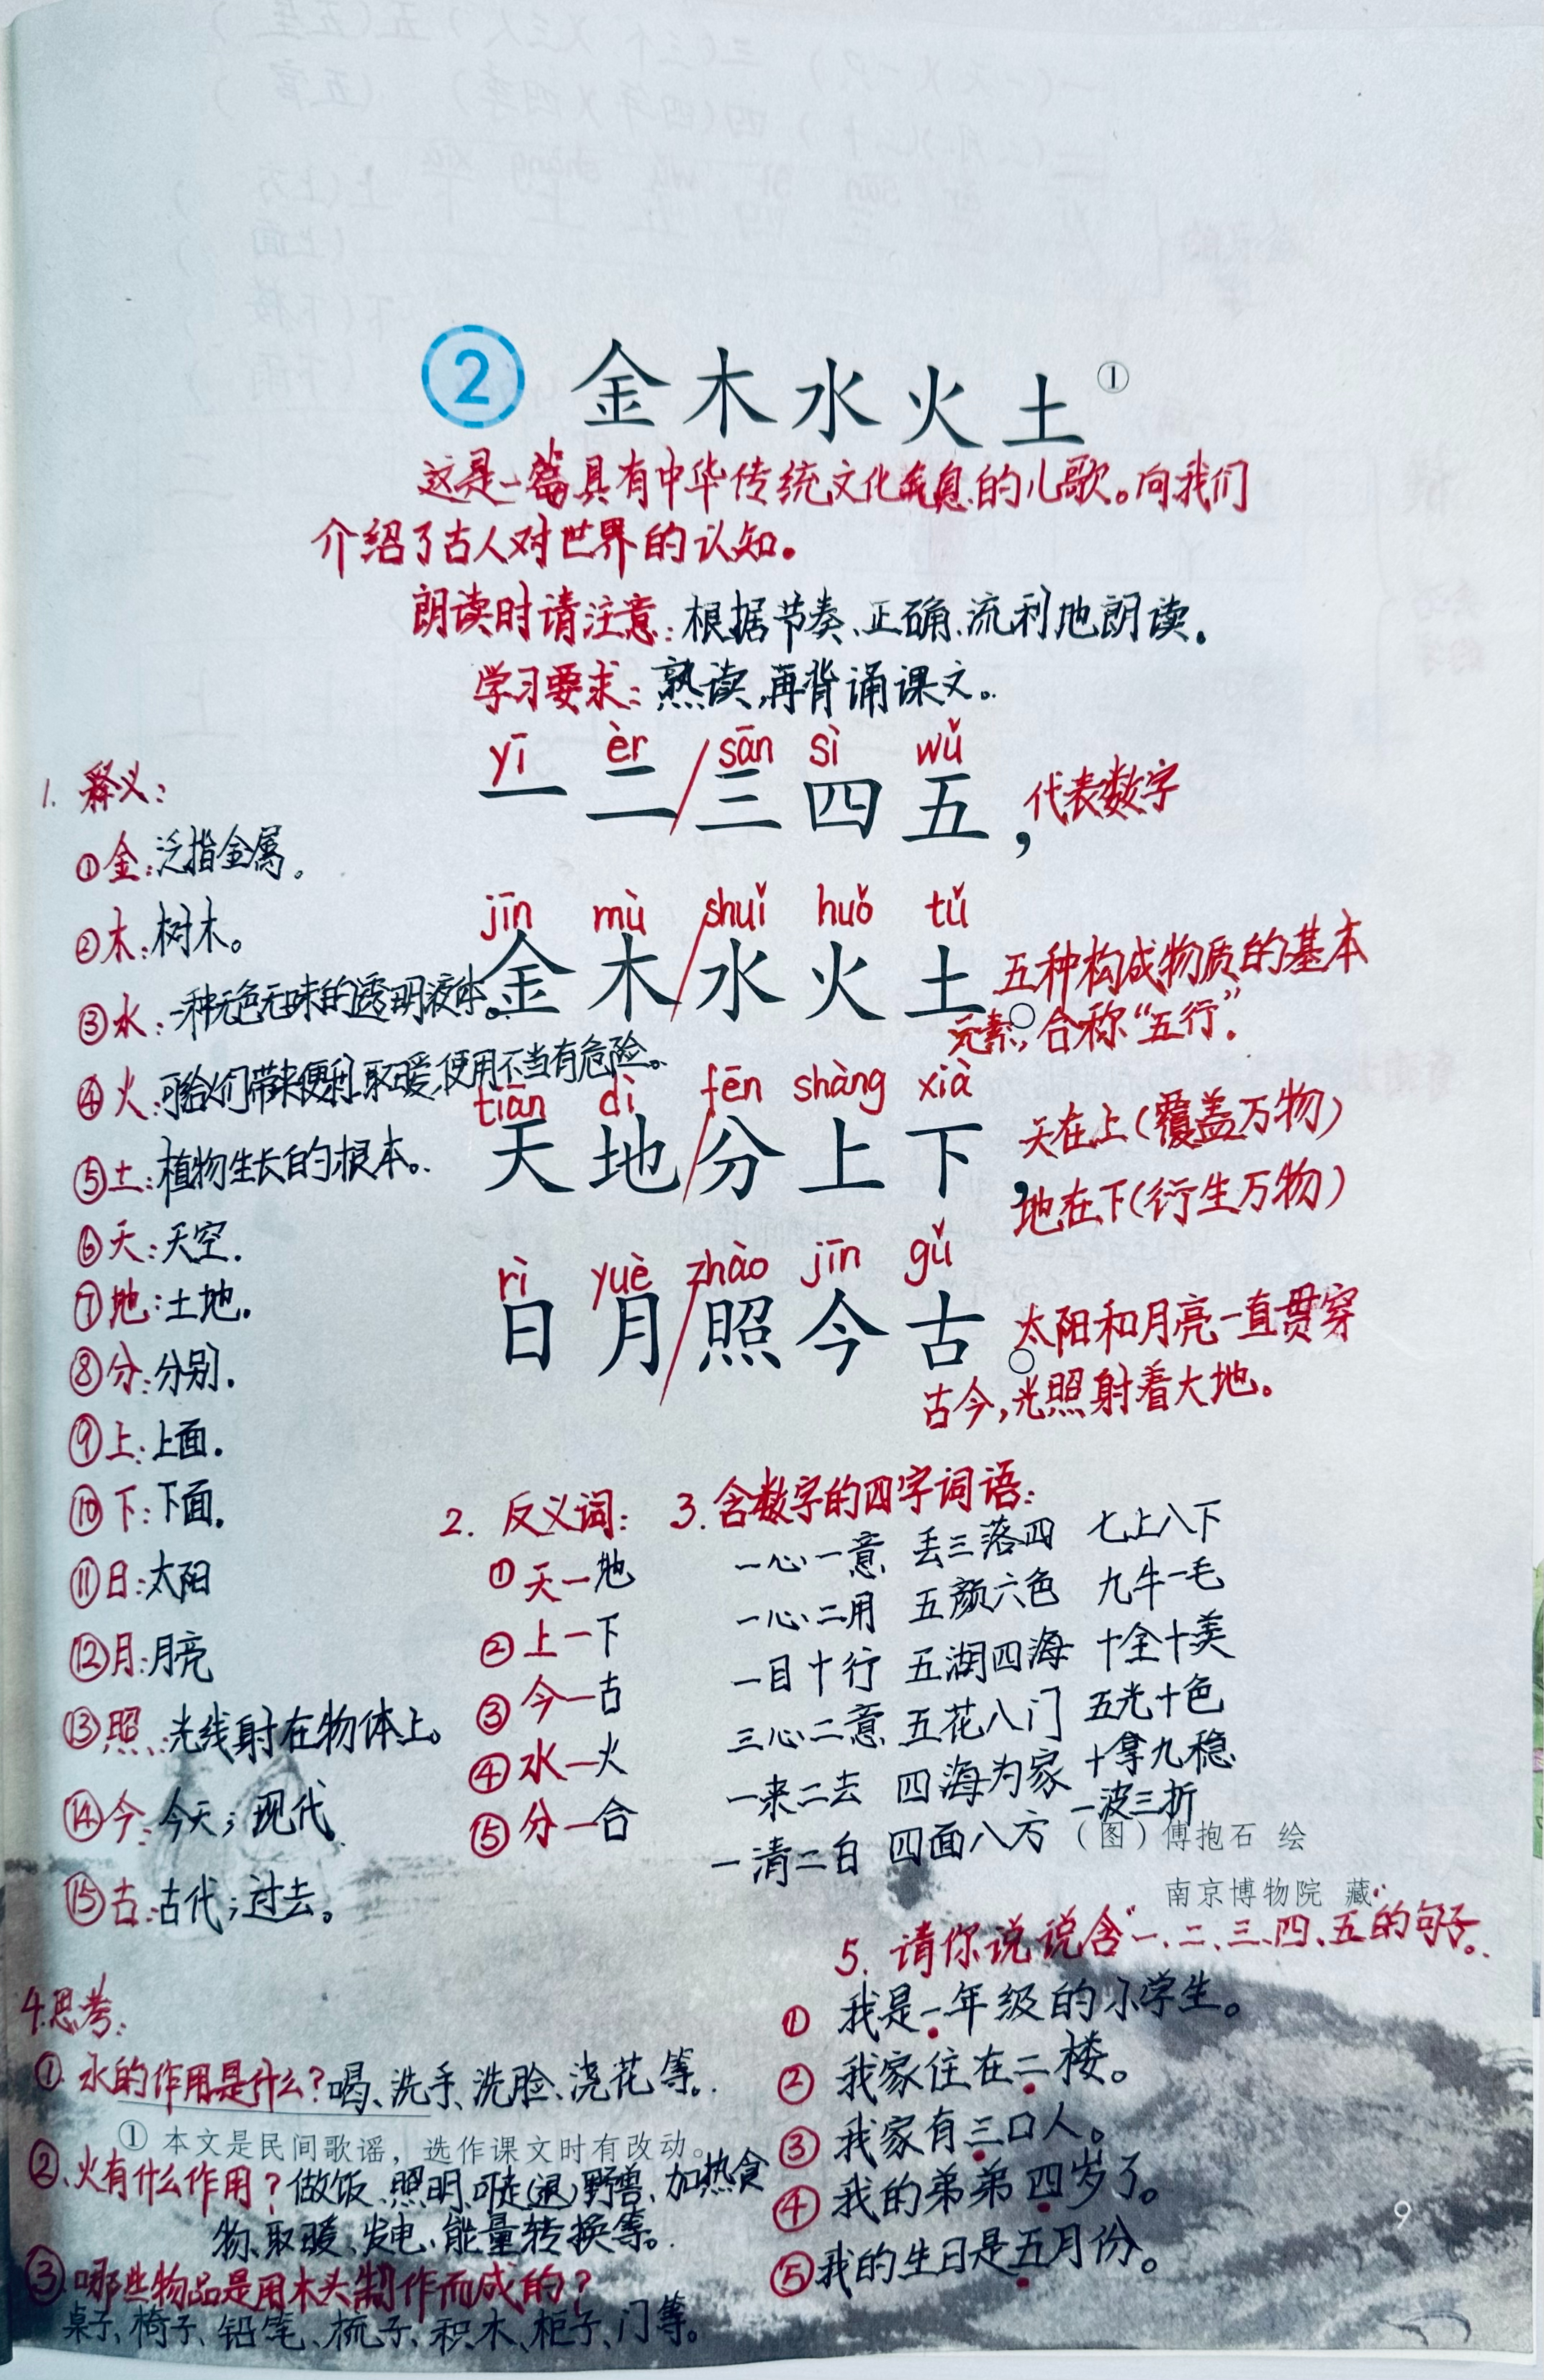 2 金木水火土①
这是一篇具有中华传统文化气息的儿歌。向我们
介绍了古人对世界的认知。
朗读时请注意：根据节奏、正确、流利地朗读。
学习要求：熟读，再背诵课文。
yī èr / sān sì wǔ
一二/三四五，代表数字
jīn mù / shuǐ huǒ tǔ
金木/水火土。五种构成物质的基本
元素，合称“五行”.
tiān dì fēn shàng xià
天地/分上下，天在上(覆盖万物)
地在下(衍生万物)
rì yuè zhào jīn gǔ
日月/照今古。太阳和月亮一直贯穿
古今，光照射着大地。
1. 释义：
①金：泛指金属。
②木：树木。
③水：一种无色无味的透明液体。
④火：可给人们带来便利、取暖，使用不当有危险。
⑤土：植物生长的根本。
⑥天：天空.
⑦地：土地.
⑧分：分别.
⑨上：上面.
⑩下：下面.
⑪日：太阳
⑫月：月亮
⑬照：光线射在物体上。
⑭今：今天；现代.
⑮古：古代；过去。
2. 反义词：
①天—地
②上—下
③今—古
④水—火
⑤分—合
3. 含数字的四字词语：
一心一意 丢三落四 七上八下
一心二用 五颜六色 九牛一毛
一目十行 五湖四海 十全十美
三心二意 五花八门 五光十色
一来二去 四海为家 十拿九稳
一清二白 四面八方 一波三折
（图）傅抱石 绘
南京博物院 藏
4.思考：
①.水的作用是什么？喝、洗手、洗脸、浇花等。
① 本文是民间歌谣，选作课文时有改动。
②、火有什么作用？做饭、照明、吓走(退)野兽、加热食
物、取暖、发电、能量转换等。
③.哪些物品是用木头制作而成的？
桌子、椅子、铅笔、梳子、积木、柜子、门等。
5. 请你说说含“一、二、三、四、五的句子。
① 我是一年级的小学生。
② 我家住在二楼。
③ 我家有三口人。
④ 我的弟弟四岁了。
⑤我的生日是五月份。
9